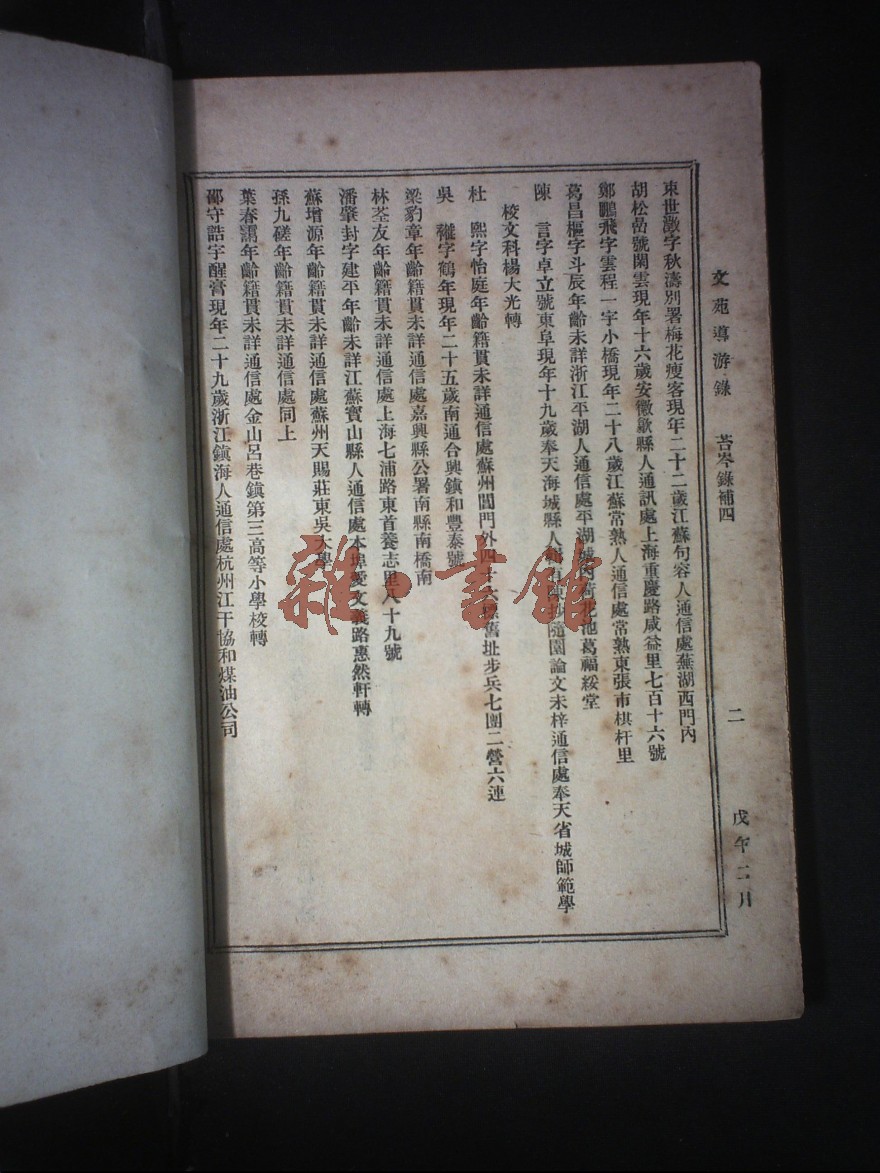 文苑導游錄　苔岑錄補四　二　戊午二月
束世澂字秋濤別署梅花瘦客現年二十二歲江蘇句容人通信處蕪湖西門內
胡松嵒號閑雲現年十六歲安徽歙縣人通訊處上海重慶路咸益里七百十六號
鄭鵬飛字雲程一字小橋現年二十八歲江蘇常熟人通信處常熟東張市棋杆里
葛昌樞字斗辰年齡未詳浙江平湖人通信處平湖城內荷花池葛福綏堂
陳　言字卓立號東阜現年十九歲奉天海城縣人輯有隨園論文未梓通信處奉天省城師範學
校文科楊大光轉
杜　熙字怡庭年齡籍貫未詳通信處蘇州閶門外四十六標舊址步兵七團二營六連
吳　離字鶴年現年二十五歲南通合興鎮和豐泰號
梁豹章年齡籍貫未詳通信處嘉興縣公署南縣南橋南
林荃友年齡籍貫未詳通信處上海七浦路東首養志里八十九號
潘肇封字建平年齡未詳江蘇寶山縣人通信處本埠愛文義路惠然軒轉
蘇增源年齡籍貫未詳通信處蘇州天賜莊東吳大學
孫九磋年齡籍貫未詳通信處同上
葉春霈年齡籍貫未詳通信處金山呂巷鎮第三高等小學校轉
邵守誥字醒膏現年二十九歲浙江鎮海人通信處杭州江干協和煤油公司
雜書館